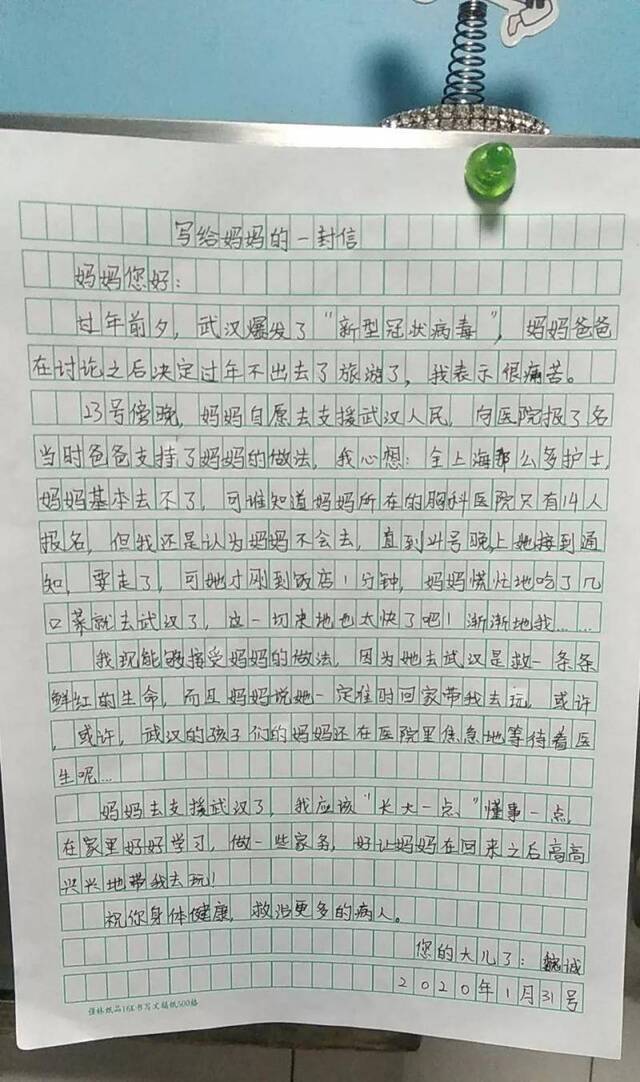 写给妈妈的一封信
妈妈您好：
过年前夕，武汉爆发了“新型冠状病毒”，妈妈爸爸
在讨论之后决定过年不出去了旅游了，我表示很痛苦。
23号傍晚，妈妈自愿去支援武汉人民，向医院报了名
当时爸爸支持了妈妈的做法，我心想：全上海那么多护士，
妈妈基本去不了，可谁知道妈妈所在的胸科医院只有14人
报名，但我还是认为妈妈不会去，直到24号晚上她接到通
知，要走了，可她才刚到饭店1分钟，妈妈慌忙地吃了几
口菜就去武汉了，这一切来地也太快了吧！渐渐地我……
我现能够接受妈妈的做法，因为她去武汉是救一条条
鲜红的生命，而且妈妈说她一定准时回家带我去玩，或许
，或许，武汉的孩子们的妈妈还在医院里焦急地等待着医
生呢…
妈妈去支援武汉了，我应该“长大一点”，懂事一点，
在家里好好学习，做一些家务，好让妈妈在回来之后高高
兴兴地带我去玩！
祝你身体健康，救治更多的病人。
您的大儿子：魏诚
2020年1月31号
强林纸品16K书写文稿纸500格